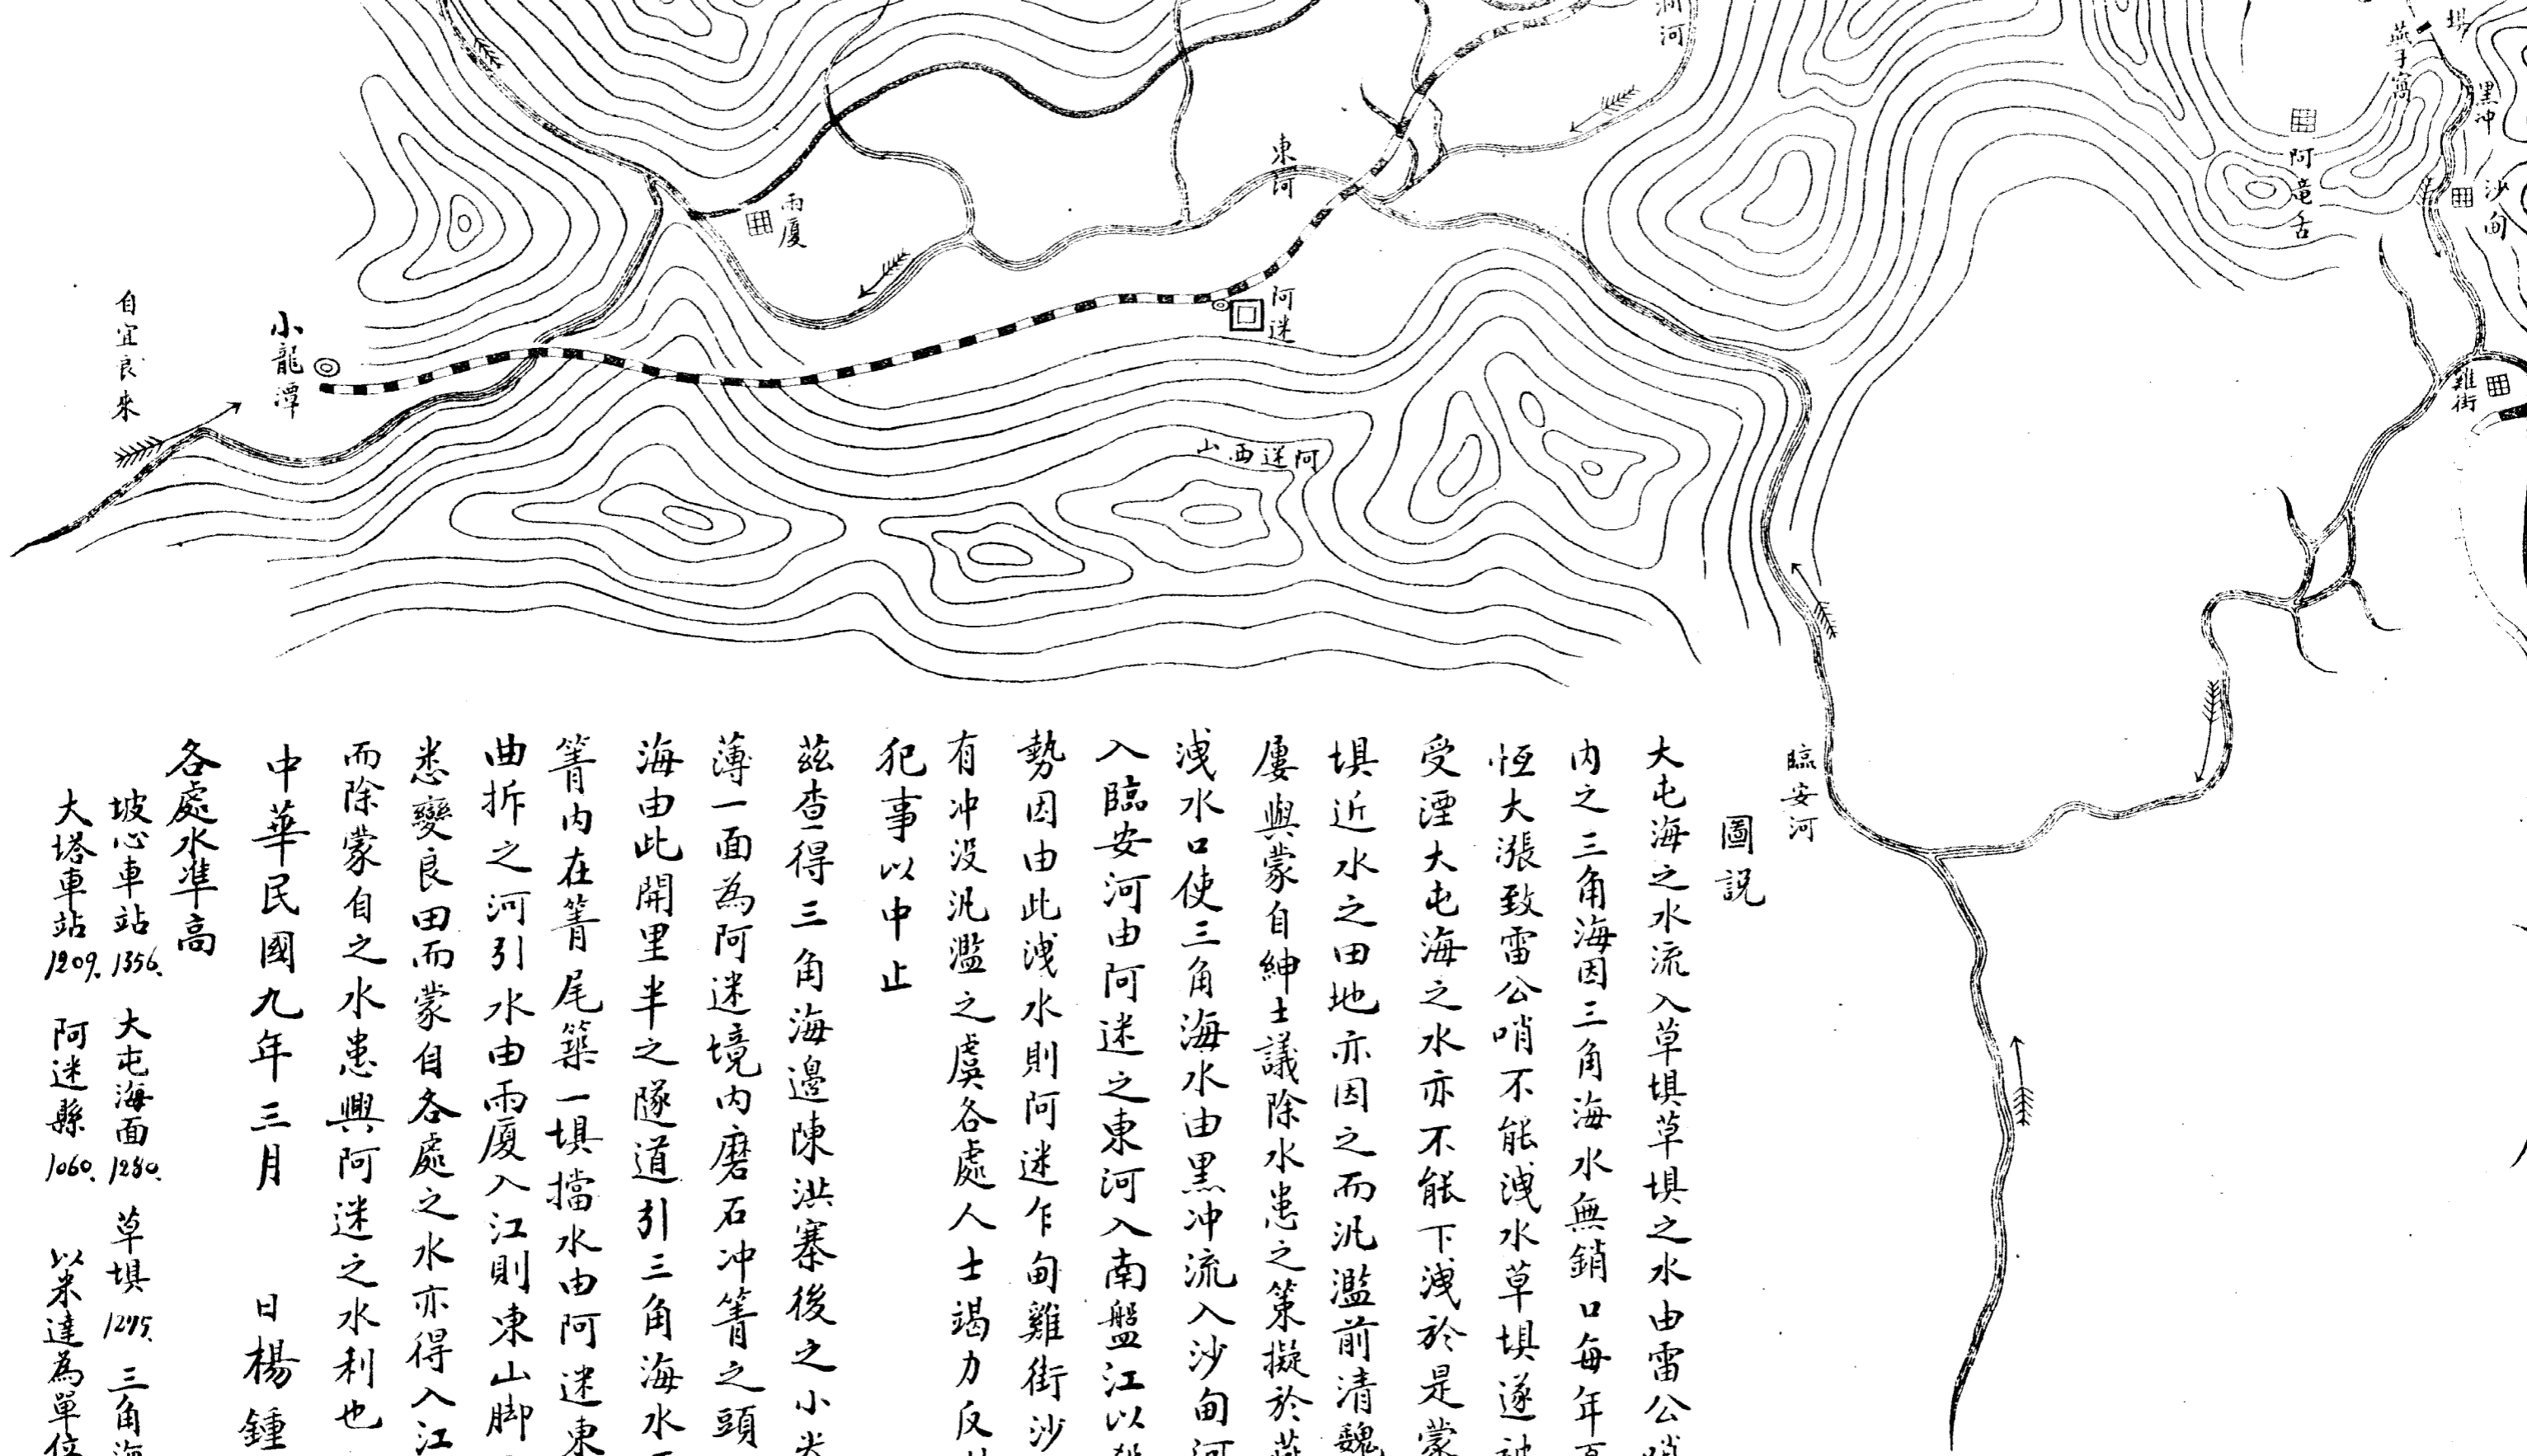 澗河
壩
燕子窩
黑冲
阿竜舌
沙甸
東河
雨厦
阿迷
自宜良來
小龍潭
雞街
阿迷西山
臨安河
圖説
大屯海之水流入草壩草壩之水由雷公哨
内之三角海因三角海水無銷口每年夏
恆大漲致雷公哨不能洩水草壩遂被
受湮大屯海之水亦不能下洩於是蒙
壩近水之田地亦因之而汎濫前清魏
屢與蒙自紳士議除水患之策擬於燕
洩水口使三角海水由黑冲流入沙甸河
入臨安河由阿迷之東河入南盤江以
勢因由此洩水則阿迷乍甸雞街沙
有冲没汎濫之虞各處人士竭力反
犯事以中止
茲查得三角海邊陳洪寨後之小尖
薄一面為阿迷境内磨石冲箐之頭
海由此開里半之隧道引三角海水
箐内在箐尾築一壩擋水由阿迷東
曲拆之河引水由雨厦入江則東山脚
悉變良田而蒙自各處之水亦得入江
而除蒙自之水患興阿迷之水利也
中華民國九年三月 日楊鍾
各處水準高
坡心車站1356. 大屯海面1280. 草壩1275. 三角海
大塔車站1209. 阿迷縣1060. 以米達為單位